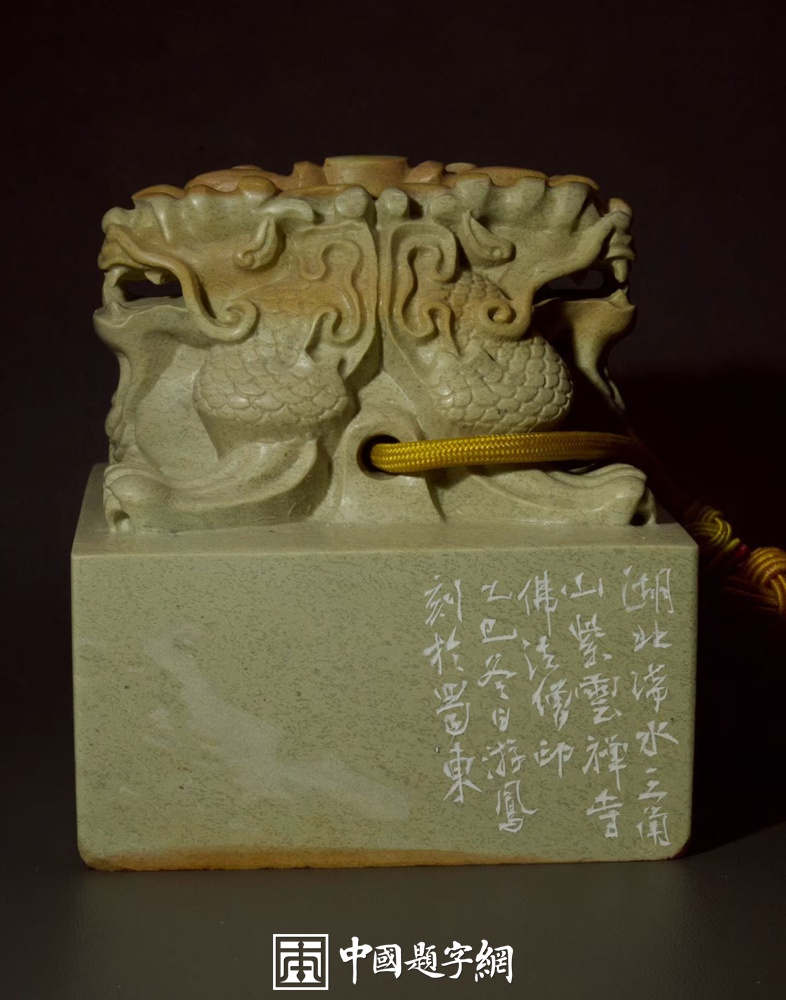 湖北浠水三角
山紫雲禪寺
佛法僧印
乙巳冬日游鳳
刻於蜀東
中國題字網